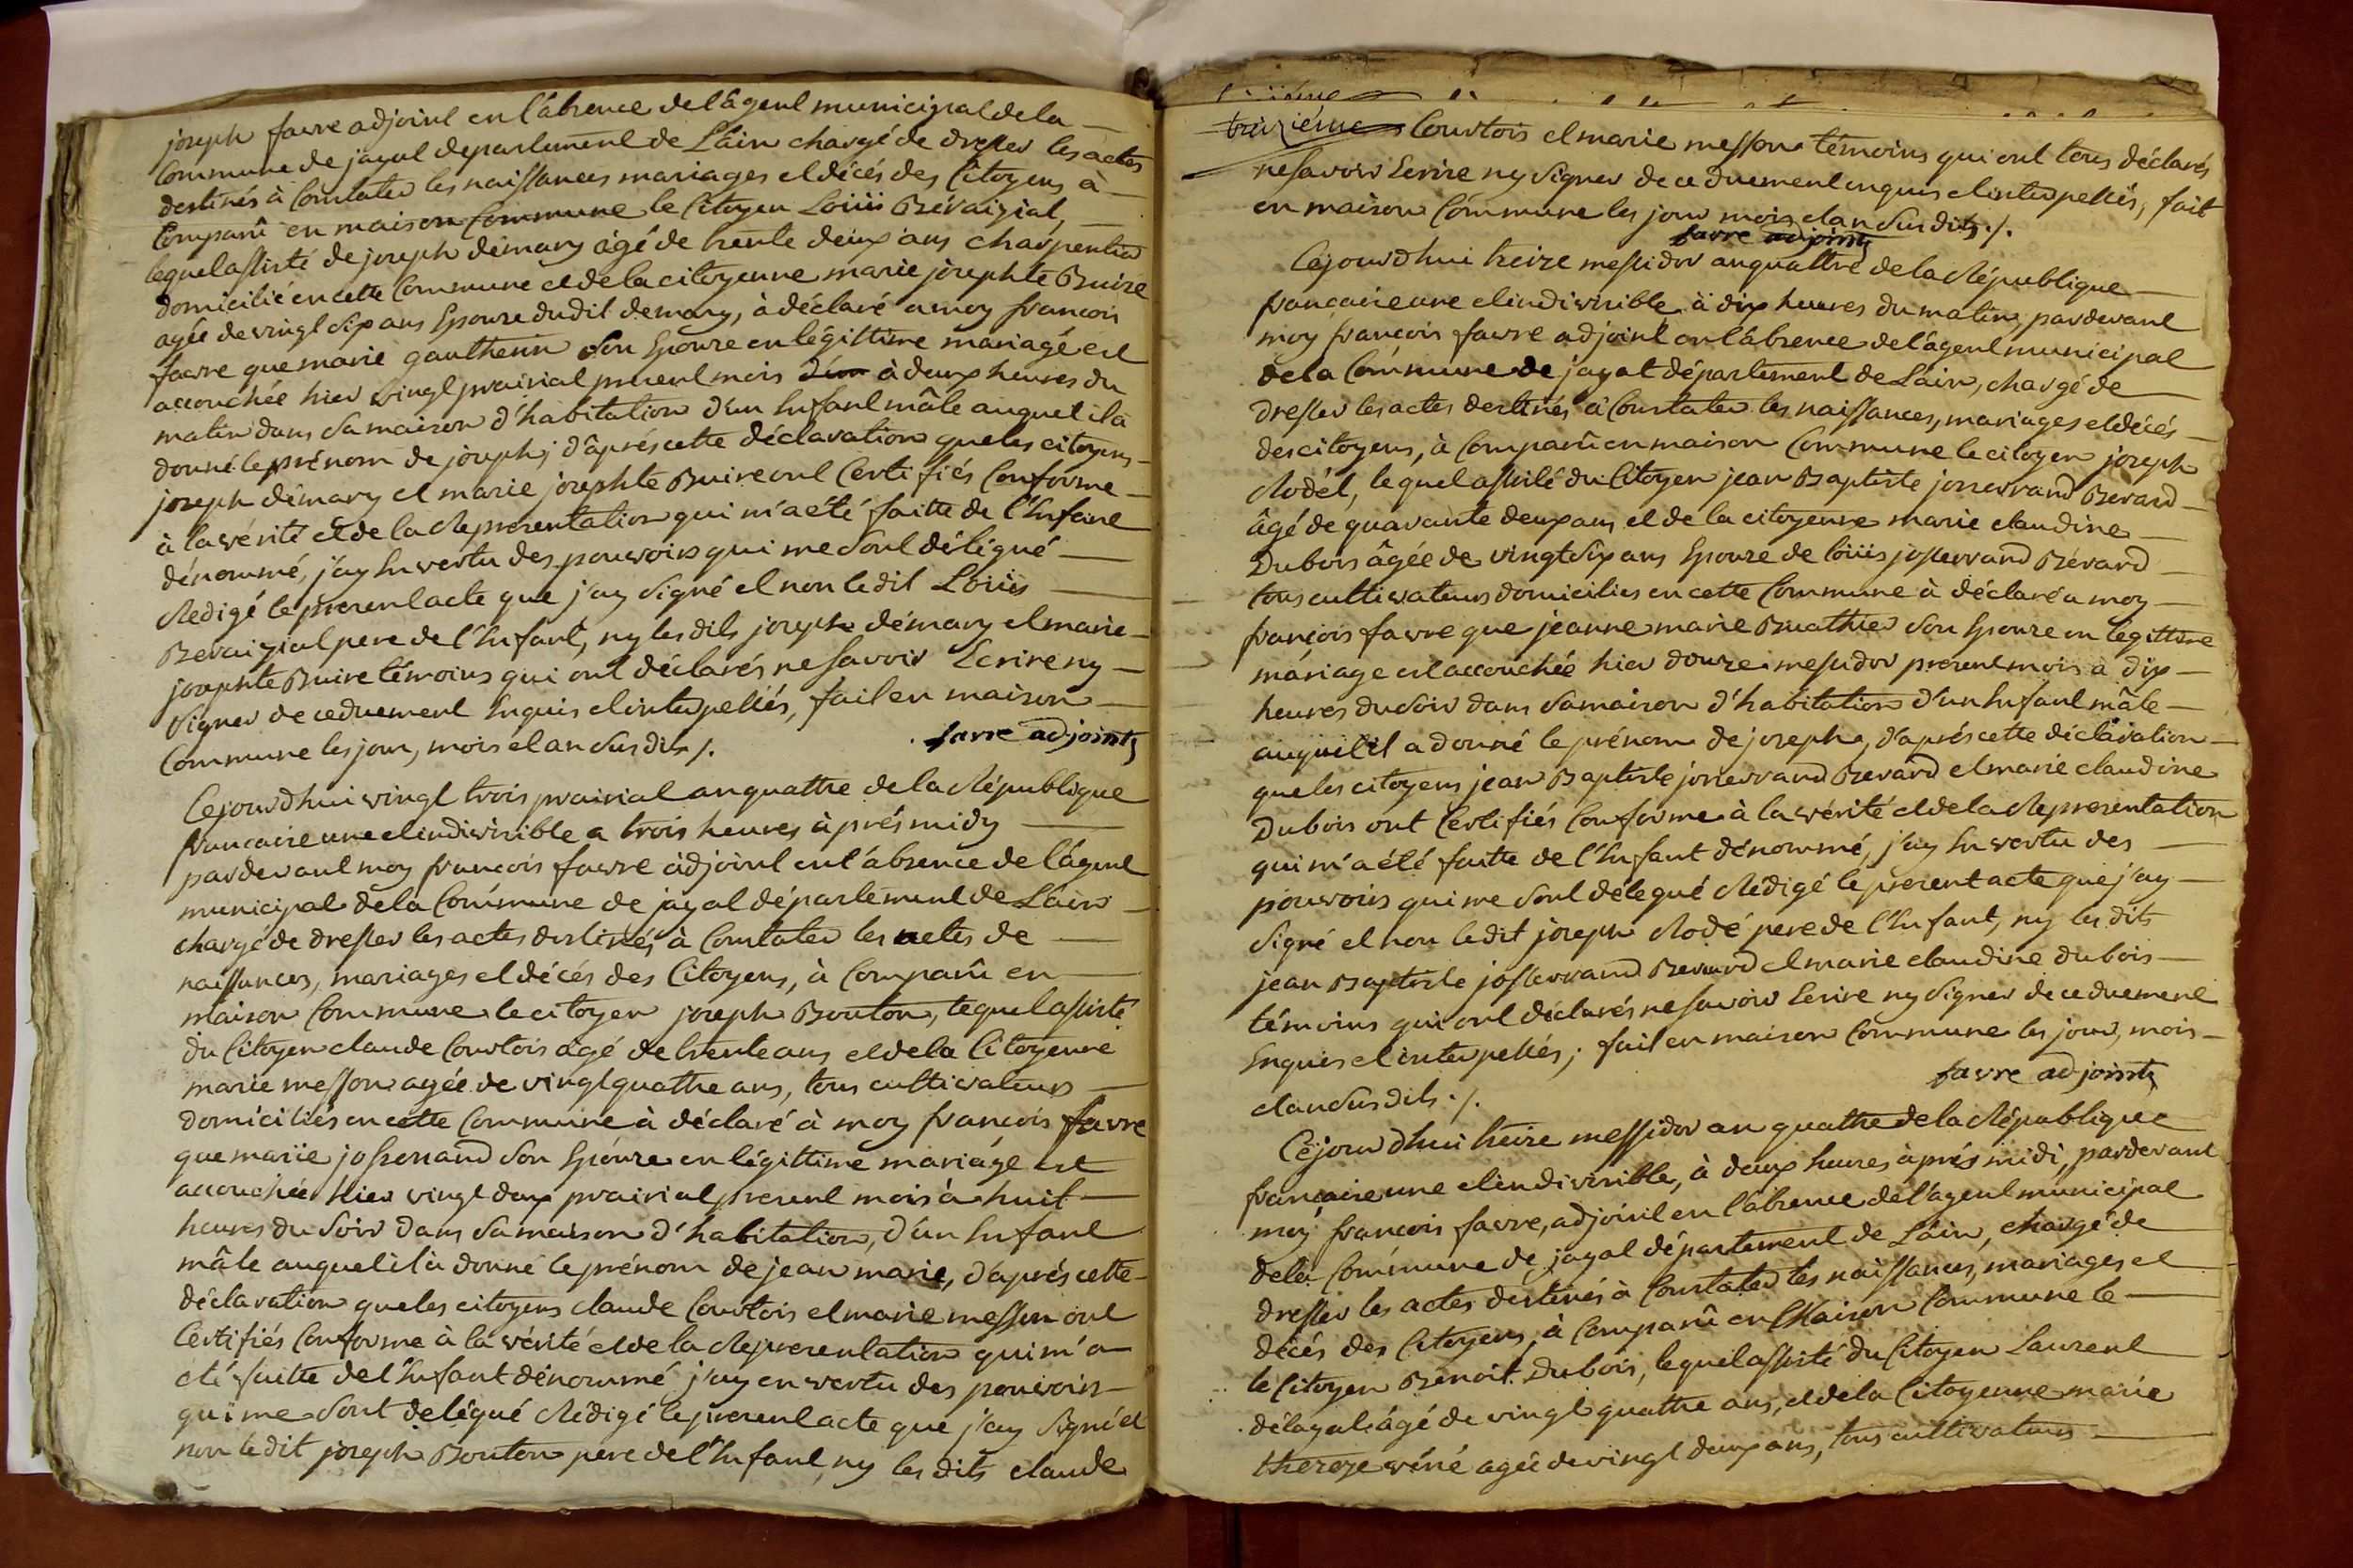 joseph favre adjoint en l'absence del'âgent municipal dela
Commune de jayat departement de L'ain chargé de dresser les actes
destinés à Constater les naissances mariages et décés des Citoyens à
Comparû en maison Commune le Citoyen Loiiis Bévaizial,
lequel assisté de joseph démary âgé de trente deux ans charpentier
domicilié en cette Commune et de la citoyenne marie josephte Buire
agée de vingt six ans Epouse dudit demary, à déclaré a moy francois
favre que marie gauthenn son Epouse en légittime mariage est
accouchée hier vingt prairial present mois à deux heures du
matin dans sa maison d'habitation d'un Enfant mâle auquel il a
donné le prénom de joseph; d'âprés cette déclaration que les citoyens
joseph démary et marie josephte Buire ont Certifiés Conforme
à la vérité et de la Representation qui m'a été faitte de l'Enfant
dénommé, j'ay En vertu des pouvoirs qui me sont déligué
Redigé le present acte que j'ay signé et non ledit Loiiis
Bevaizial pere de l'Enfant, ny les dits joseph démary et marie
josephte Buire témoins qui ont déclarés ne savoir Ecrire ny
signer de ce duement Enquis et interpellés, fait en maison
Commune les jour, mois et an susdits /.
favre adjoint
Cejourd'hui vingt trois prairial an quattre de la République
francaise une et indivisible a trois heures après midy
pardevant moy francois favre adjoint en l'absence de l'âgent
municipal dela Commune de jayat département de L'ain
chargé de dresser les actes destinés à Constater les actes de
naissances, mariages et décés des Citoyens, à Comparû en
maison Commune le citoyen joseph Bouton, lequel assisté
du Citoyen claude Courtois âgé de trente ans et de la Citoyenne
marie messon agée de vingt quatre ans, tous cultivateurs
domiciliés en cette Commune à déclaré à moy francois favre
que mariie josserand son Epouse en légittime mariage est
accouchée hier vingt deux prairial present mois à huit
heures du soir dans sa maison d'habitation, d'un Enfant
mâle auquel il à donné le prénom de jean marie, d'aprés cette
déclaration que les citoyens claude Courtois et marie messon ont
Certifiés Conforme à la vérité et de la Representation qui m'a
été faitte de l'Enfant dénommé j'ay en vertu des pouvoirs
qui me sont delégué Rédigé le present acte que j'ay signé et
non ledit joseph Bouton pere de l'Enfant, ny les dits claude
treizième Courtois et marie messon témoins qui ont tous déclarés
ne savoir Ecrire ny signer de ce duement enquis et interpellés, fait
en maison Commune les jour mois et an susdits /.
favre adjoint
Cejourd'hui treize messidor an quattre de la République
francaise une et indivisible, à dix heures du matin, pardevant
moy francois favre adjoint en l'absence de l'âgent municipal
dela Commune de jayat département de L'ain, chargé de
dresser les actes destinés à Constater les naissances, mariages et décés
des citoyens, à Comparû en maison Commune le citoyen joseph
Rodét, lequel assisté du Citoyen jean Baptiste josserrand Berard
âgé de quarante deux ans et de la citoyenne marie claudine
Dubois âgée de vingt six ans Epouse de loiiis josserrand Bérard
tous cultivateurs domiciliés en cette Commune à déclaré a moy
françois favre que jeanne marie Buathier son Epouse en légittime
mariage est accouchée hier douze messidor present mois à dix
heures du soir dans sa maison d'habitation d'un Enfant mâle
auquel il a donné le prénom de joseph, d'aprés cette déclaration
que les citoyens jean Baptiste josserrand Berard et marie claudine
Dubois ont Certifiés Conforme à la vérité et de la Representation
qui m'a été faitte de l'Enfant dénommé, j'ay En vertu des
pouvoirs qui me sont délegué Rédigé le present acte que j'ay
signé et non ledit joseph Rodé pere de l'Enfant, ny les dits
jean Baptiste josserrand Berard et marie claudine dubois
témoins qui ont déclarés ne savoir Ecrire ny signer de ce duement
Enquis et interpellés; fait en maison Commune les jour, mois
et an susdits /.
favre adjoint
Céjourd'hui treize messidor an quatre de la République
française une et indivisible, à deux heures après midi, pardevant
moy francois favre, adjoint en l'absence de l'agent municipal
dela Commune de jayat département de L'ain, chargé de
dresser les actes destinés à Constater les naissances, mariages et
décés des Citoyens, à Comparû en Maison Commune le
le Citoyen Benoit Dubois, lequel assisté du Citoyen Laurent
délayat âgé de vingt quattre ans, et de la Citoyenne marie
thereze véné agée de vingt deux ans, tous cultivateurs